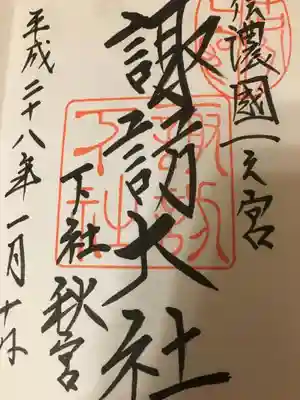 信濃國一之宮
諏訪大社
下社 秋宮
平成二十八年一月十